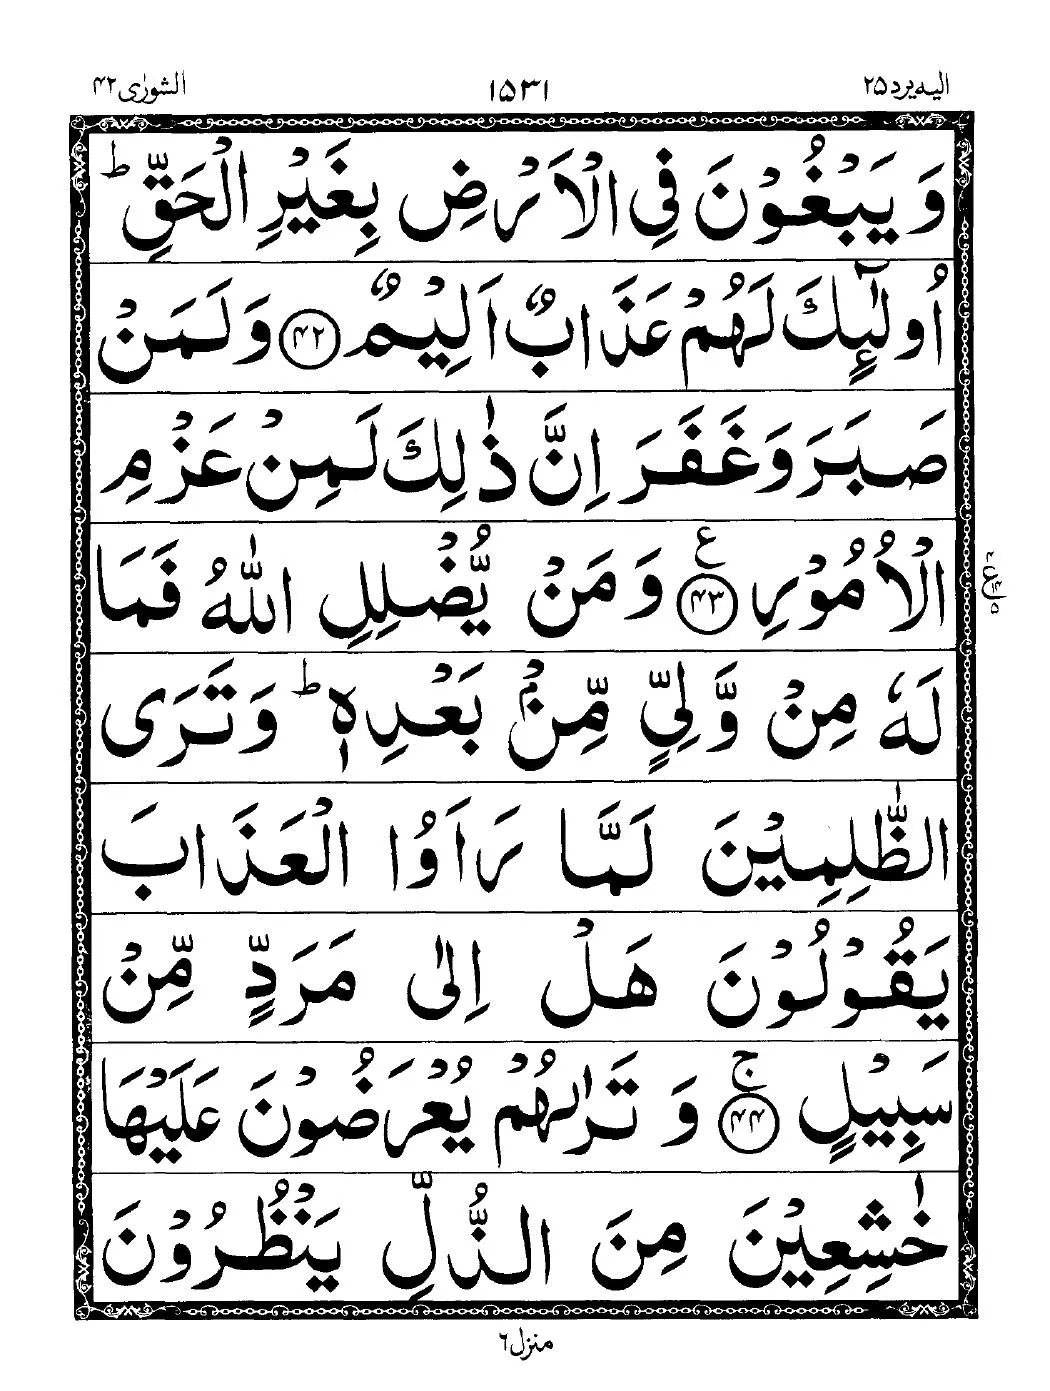 الیه یرد ۲۵ ۱۵۳۱ الشورٰی ۴۲
وَ يَبْغُوْنَ فِي الْاَرْضِ بِغَيْرِ الْحَقِّ ؕ
اُولٰٓئِكَ لَهُمْ عَذَابٌ اَلِيْمٌ ﴿۴۲﴾ وَلَمَنْ
صَبَرَ وَغَفَرَ اِنَّ ذٰلِكَ لَمِنْ عَزْمِ
الْاُمُوْرِ ﴿۴۳﴾ ع وَ مَنْ يُّضْلِلِ اللّٰهُ فَمَا
لَهٗ مِنْ وَّلِيٍّ مِّنْۢ بَعْدِهٖ ؕ وَ تَرَى
الظّٰلِمِيْنَ لَمَّا رَاَوُا الْعَذَابَ
يَقُوْلُوْنَ هَلْ اِلٰى مَرَدٍّ مِّنْ
سَبِيْلٍ ﴿۴۴﴾ ۚ وَ تَرٰىهُمْ يُعْرَضُوْنَ عَلَيْهَا
خٰشِعِيْنَ مِنَ الذُّلِّ يَنْظُرُوْنَ
منزل ٦